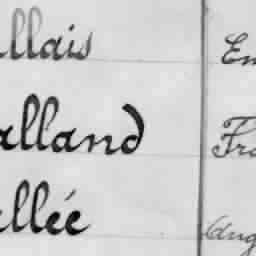 llais Em
alland Fra
llée Aug